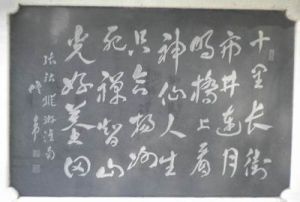 十里長街
市井連月
明橋上看
神仙人生
只合揚州
死禪智山
光好墓田
張祜縱游淮南